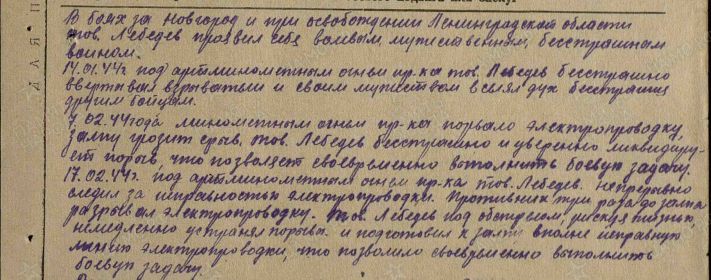 В боях за Новгород и при освобождении Ленинградской области
тов. Лебедев проявил себя волевым, мужественным, бесстрашным
воином.
14.01.44г. под артминометным огнем пр-ка тов. Лебедев бесстрашно
ввертывал взрыватели и своим мужеством вселял дух бесстрашия
другим бойцам.
7.02.44 года минометным огнем пр-ка порвало электропроводку,
залпу грозит срыв, тов. Лебедев бесстрашно и уверенно ликвидиру-
ет порыв, что позволяет своевременно выполнить боевую задачу.
17.02.44г. под артминометным огнем пр-ка тов. Лебедев непрерывно
следил за исправностью электропроводки. Противник три раза до залпа
разрывал электропроводку. Тов. Лебедев под обстрелом, рискуя жизнью,
немедленно устранял порывы и подготовил к залпу вполне исправную
линию электропроводки, что позволило своевременно выполнить
боевую задачу.